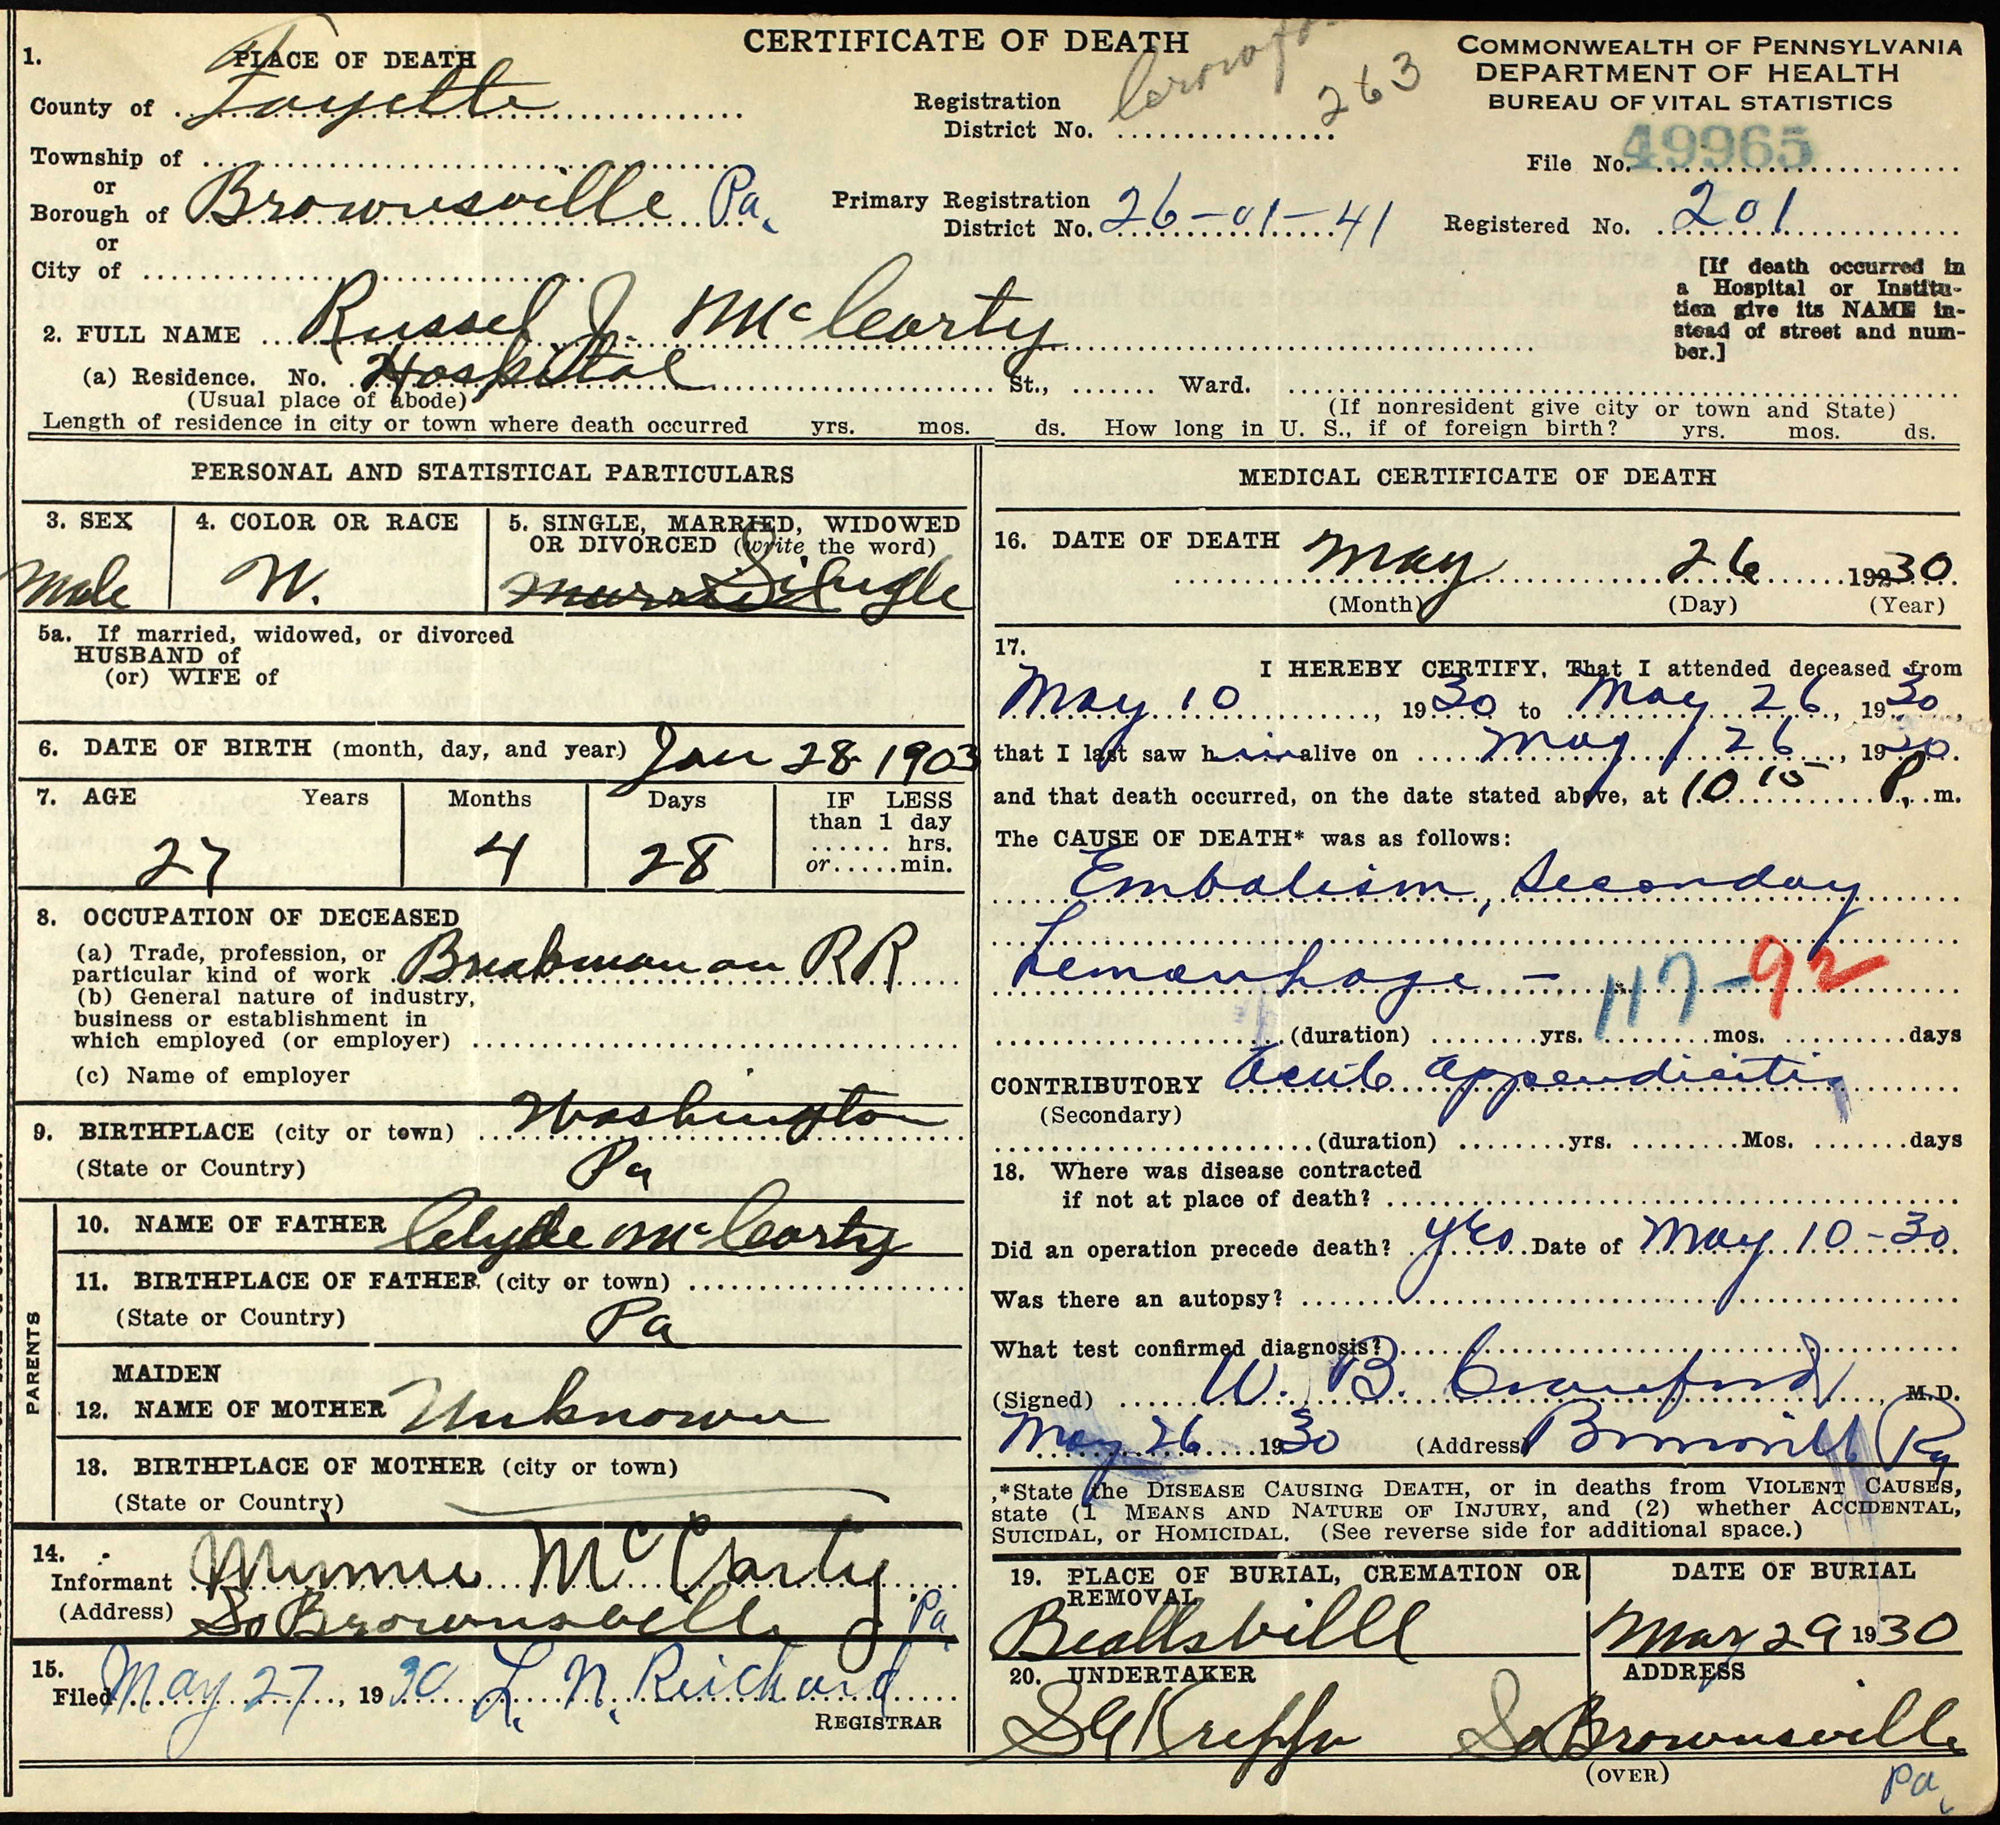 CERTIFICATE OF DEATH
COMMONWEALTH OF PENNSYLVANIA
DEPARTMENT OF HEALTH
BUREAU OF VITAL STATISTICS
1. PLACE OF DEATH
County of Fayette
Registration District No. 263
File No. 49965
Township of
or
Borough of Brownsville Pa.
Primary Registration District No. 26-01-41
Registered No. 201
or
City of
[If death occurred in a Hospital or Institution give its NAME instead of street and number.]
2. FULL NAME Russel J. McCarty
(a) Residence. No. Hospital St., Ward.
(Usual place of abode)
(If nonresident give city or town and State)
Length of residence in city or town where death occurred yrs. mos. ds. How long in U. S., if of foreign birth? yrs. mos. ds.
PERSONAL AND STATISTICAL PARTICULARS
3. SEX
Male
4. COLOR OR RACE
W.
5. SINGLE, MARRIED, WIDOWED
OR DIVORCED (write the word)
Married Single
5a. If married, widowed, or divorced
HUSBAND of
(or) WIFE of
6. DATE OF BIRTH (month, day, and year) Jan 28 1903
7. AGE Years Months Days
27 4 28
IF LESS
than 1 day
hrs.
or min.
8. OCCUPATION OF DECEASED
(a) Trade, profession, or
particular kind of work Brakeman on RR
(b) General nature of industry,
business or establishment in
which employed (or employer)
(c) Name of employer
9. BIRTHPLACE (city or town) Washington
(State or Country) Pa
PARENTS
10. NAME OF FATHER Clyde McCarty
11. BIRTHPLACE OF FATHER (city or town)
(State or Country) Pa
MAIDEN
12. NAME OF MOTHER Unknown
13. BIRTHPLACE OF MOTHER (city or town)
(State or Country)
14.
Informant Minnie McCarty
(Address) So Brownsville Pa
15.
Filed May 27, 1930 L. N. Reichard
REGISTRAR
MEDICAL CERTIFICATE OF DEATH
16. DATE OF DEATH
May 26 19230
(Month) (Day) (Year)
17.
I HEREBY CERTIFY, That I attended deceased from
May 10, 1930 to May 26, 1930,
that I last saw him alive on May 26, 1930
and that death occurred, on the date stated above, at 10 15 P. m.
The CAUSE OF DEATH* was as follows:
Embolism, Secondary
hemorrhage - 117-92
(duration) yrs. mos. days
CONTRIBUTORY Acute appendicitis
(Secondary)
(duration) yrs. Mos. days
18. Where was disease contracted
if not at place of death?
Did an operation precede death? yes Date of May 10-30
Was there an autopsy?
What test confirmed diagnosis?
(Signed) W. B. Crawford, M.D.
May 26 1930 (Address) Brownsville Pa
*State the DISEASE CAUSING DEATH, or in deaths from VIOLENT CAUSES,
state (1 MEANS AND NATURE OF INJURY, and (2) whether ACCIDENTAL,
SUICIDAL, or HOMICIDAL. (See reverse side for additional space.)
19. PLACE OF BURIAL, CREMATION OR
REMOVAL
Beallsville
DATE OF BURIAL
May 29 1930
20. UNDERTAKER
ADDRESS
So Brownsville
(OVER)
Pa.